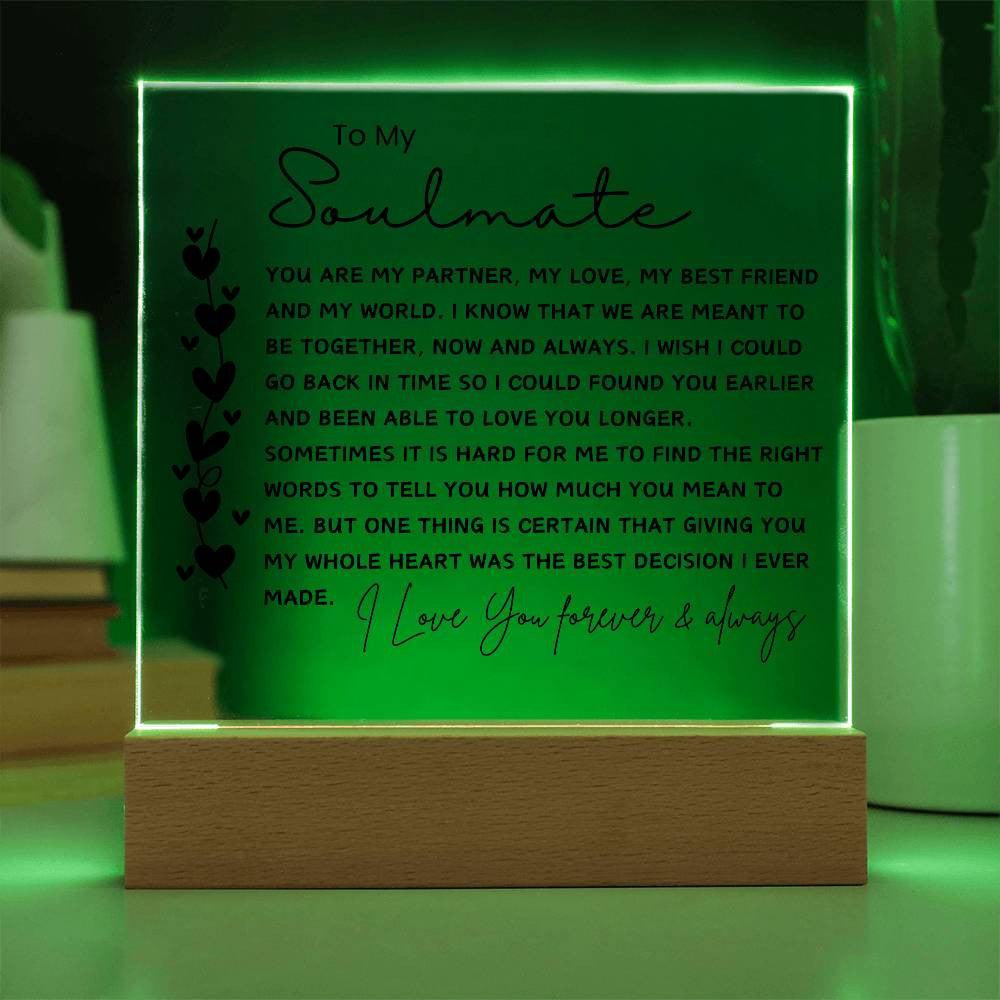 To My
Soulmate
YOU ARE MY PARTNER, MY LOVE, MY BEST FRIEND
AND MY WORLD. I KNOW THAT WE ARE MEANT TO
BE TOGETHER, NOW AND ALWAYS. I WISH I COULD
GO BACK IN TIME SO I COULD FOUND YOU EARLIER
AND BEEN ABLE TO LOVE YOU LONGER.
SOMETIMES IT IS HARD FOR ME TO FIND THE RIGHT
WORDS TO TELL YOU HOW MUCH YOU MEAN TO
ME. BUT ONE THING IS CERTAIN THAT GIVING YOU
MY WHOLE HEART WAS THE BEST DECISION I EVER
MADE.
I Love You forever & always